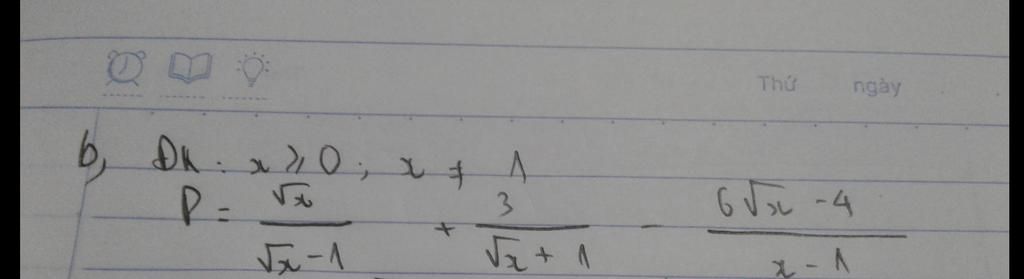 Thứ ngày
b, ĐK : x ≥ 0 ; x ≠ 1
P = √x / (√x - 1) + 3 / (√x + 1) - (6√x - 4) / (x - 1)